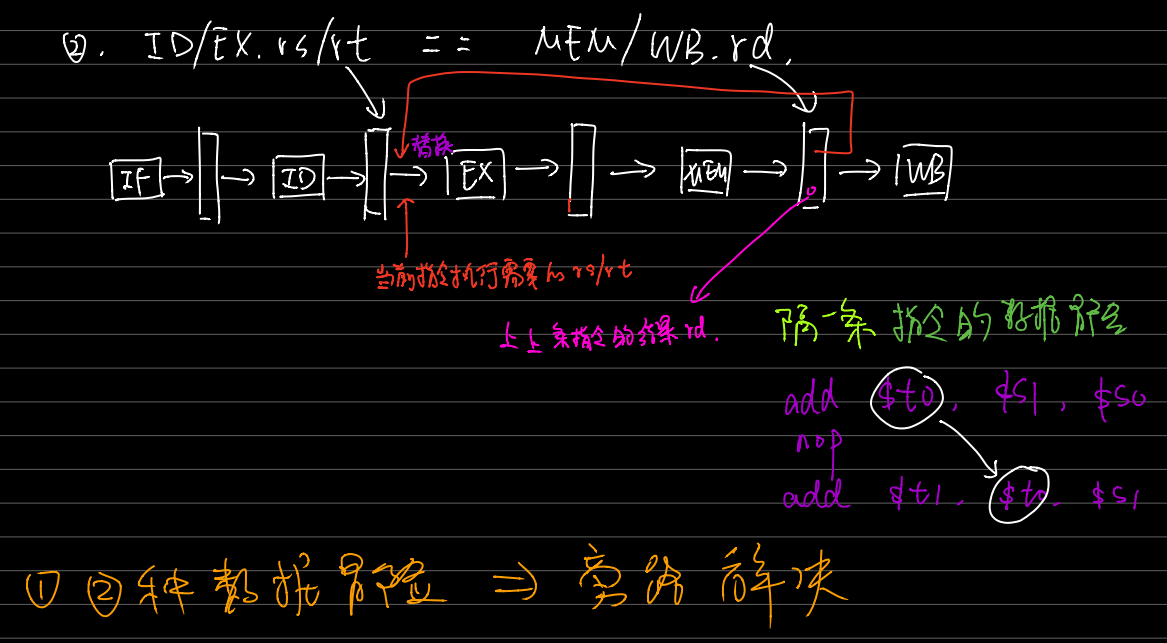 ②. ID/EX.rs/rt == MEM/WB.rd.
替换
IF ID EX MEM WB
当前指令执行需要的 rs/rt
上上条指令的结果rd.
隔一条 指令的数据冒险
add $t0, $s1, $s0
nop
add $t1, $t0, $s1
① ②种数据冒险 ⇒ 旁路解决